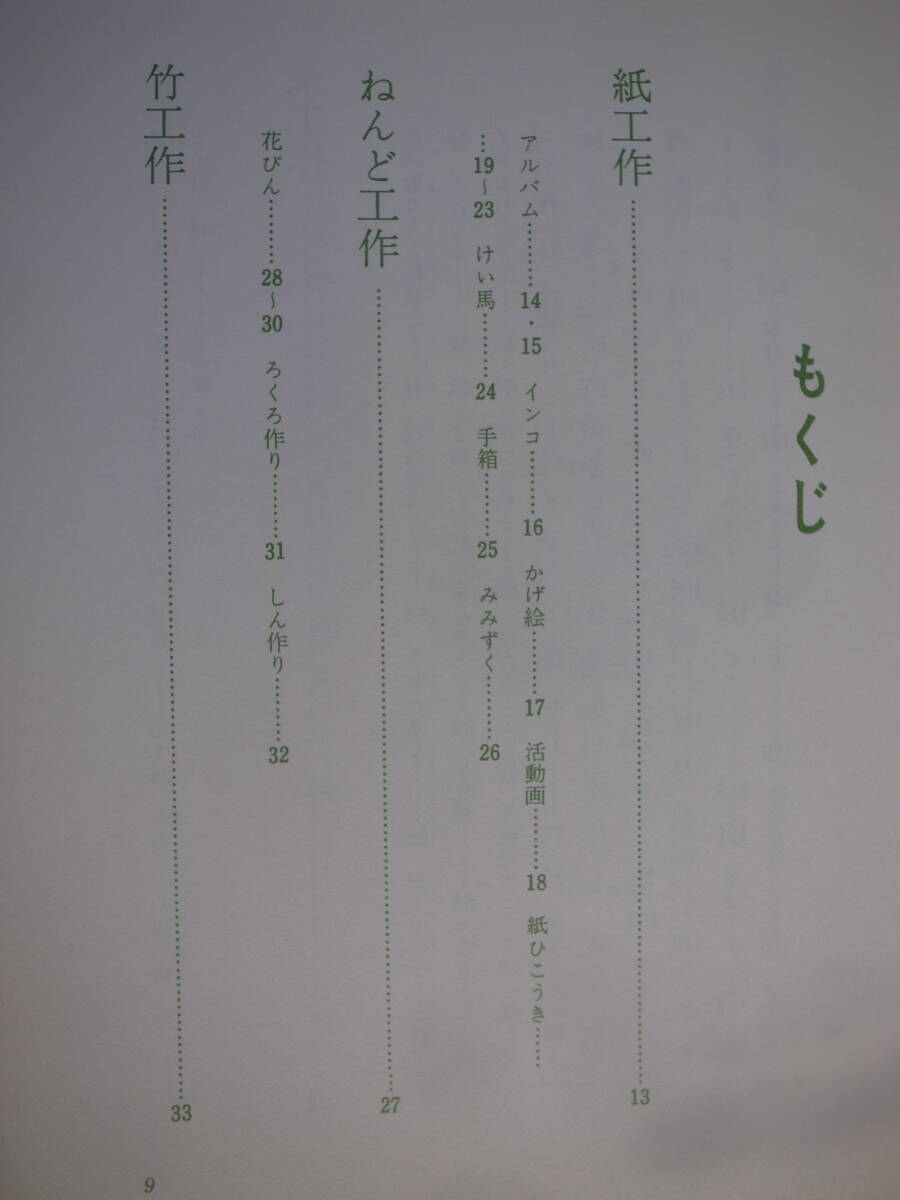 もくじ
紙工作……13
アルバム……14・15 インコ……16 かげ絵……17 活動画……18 紙ひこうき……
…19〜23 けい馬……24 手箱……25 みみずく……26
ねんど工作……27
花びん……28〜30 ろくろ作り……31 しん作り……32
竹工作……33
9